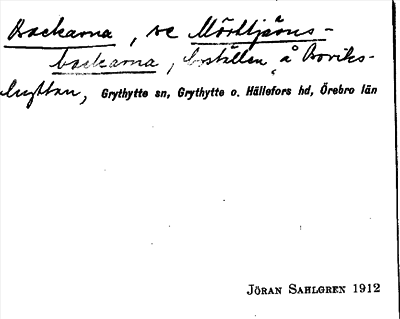 Backarna, se Mörttjärns-
backarna, boställen å Boviks-
hyttan, Grythytte sn, Grythytte o. Hällefors hd, Örebro län
JÖRAN SAHLGREN 1912